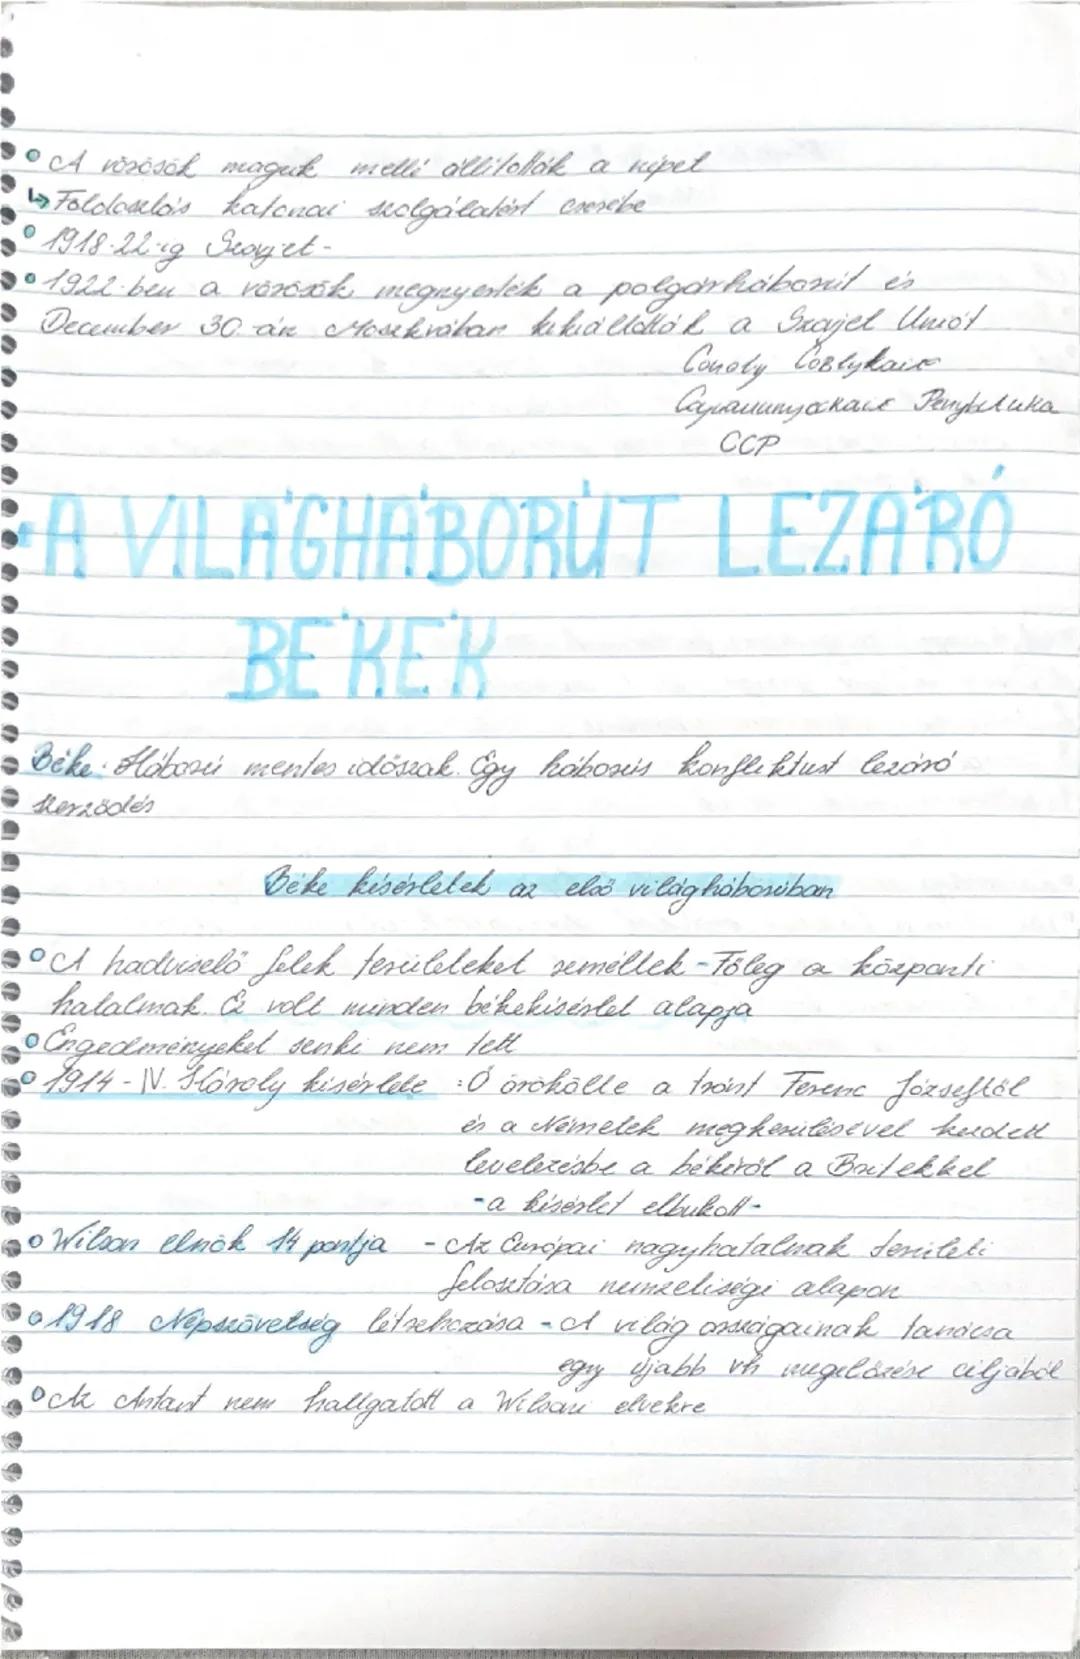 A vörösök maguk mellé állították a népet
↳ Földosztás katonai szolgálatért cserébe
1918-22-ig Szovjet-
1922-ben a vörösök megnyerték a polgárháborút és
December 30.-án Moszkvában kikiáltották a Szovjet Uniót
ССР
A VILÁGHÁBORÚT LEZÁRÓ
BÉKÉK
Béke: Háború mentes időszak. Egy háborús konfliktust lezáró
szerződés
Béke kísérletek az első világháborúban
A hadviselő felek területeket reméltek - Főleg a központi
hatalmak. Ez volt minden békekísérlet alapja
Engedményeket senki nem tett
1914 - IV. Károly kísérlete : Ő örökölte a trónt Ferenc Józseftől
és a Németek megkerülésével kezdett
levelezésbe a békéről a Britekkel
- a kísérlet elbukott -
Wilson elnök 14 pontja - Az Európai nagyhatalmak területi
felosztása nemzetiségi alapon
1918 Népszövetség létrehozása - A világ országainak tanácsa
egy újabb vh megelőzése céljából
Az Antant nem hallgatott a Wilsoni elvekre